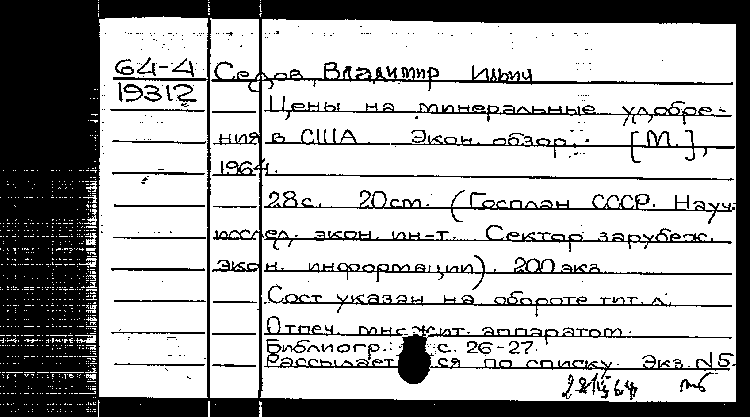 64-4 Седов, Владимир Ильич
19312
Цены на минеральные удобре-
ния в США. Экон. обзор. [М.],
1964.
28с. 20см. (Госплан СССР. Науч.
исслед. экон. ин-т. Сектор зарубеж.
экон. информации). 200 экз.
Сост указан на обороте тит. л.
Отпеч. множит. аппаратом.
Библиогр.: с. 26-27.
Рассылается по списку. Экз. №5.